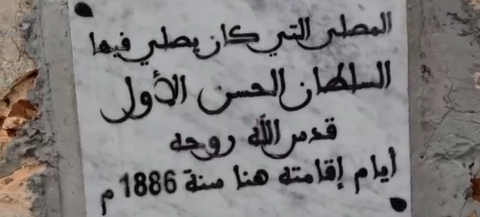 المصلى التي كان يصلي فيها
السلطان الحسن الأول
قدس الله روحه
أيام إقامته هنا سنة 1886 م